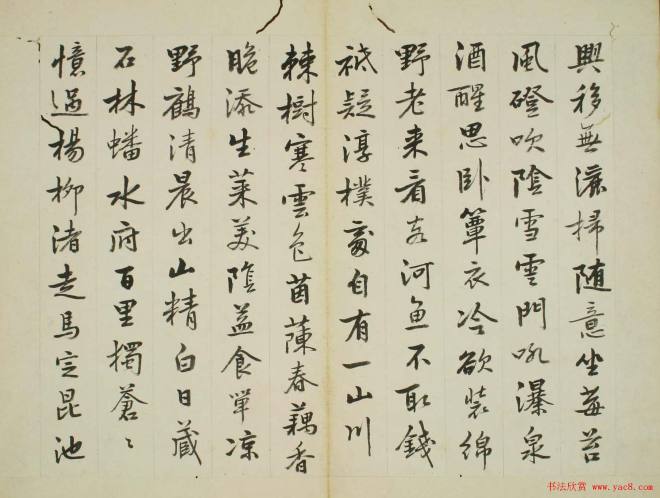 興移無灑掃随意坐莓苔
風磴吹陰雪雲門吼瀑泉
酒醒思卧簟衣冷欲裝綿
野老来看客河魚不取錢
祗疑淳樸處自有一山川
棘樹寒雲色茵蔯春藕香
脆添生菜美陰益食單凉
野鶴清晨出山精白日藏
石林蟠水府百里獨蒼〻
憶過楊柳渚走馬定昆池
书法欣赏
www.yac8.com